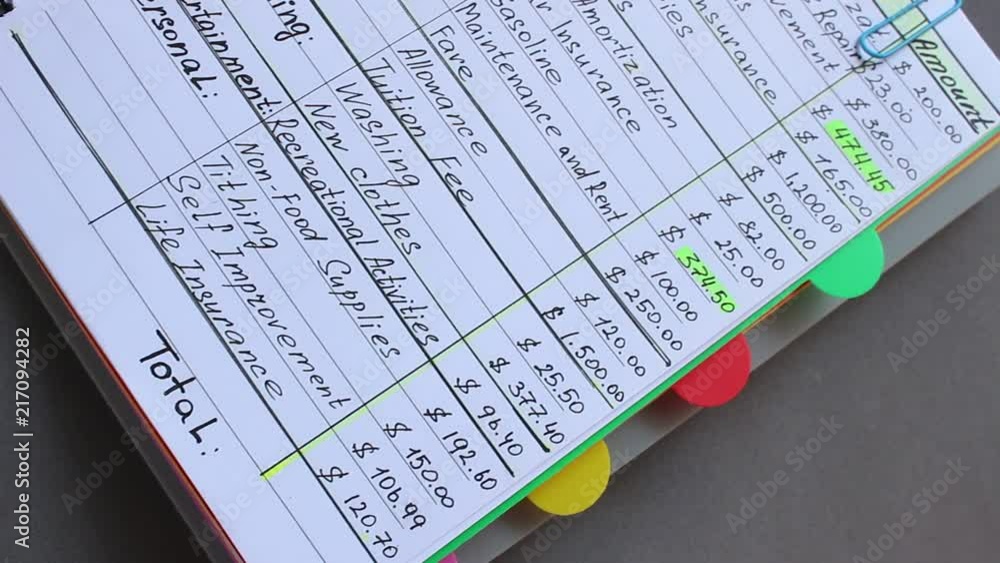 Amount
$ 200.00
$ 23.00
Repair $ 380.00
$ 474.45
$ 165.00
Insurance $ 1,200.00
$ 500.00
Amortization $ 82.00
Insurance $ 25.00
Gasoline $ 374.50
Maintenance and Rent $ 100.00
Fare $ 250.00
Allowance $ 120.00
Tuition Fee $ 1,500.00
Washing $ 25.50
New clothes $ 377.40
Recreational Activities $ 96.40
Non-Food Supplies $ 192.60
Tithing $ 150.00
Self Improvement $ 106.99
Life Insurance $ 120.70
Total:
Adobe Stock | #217094282